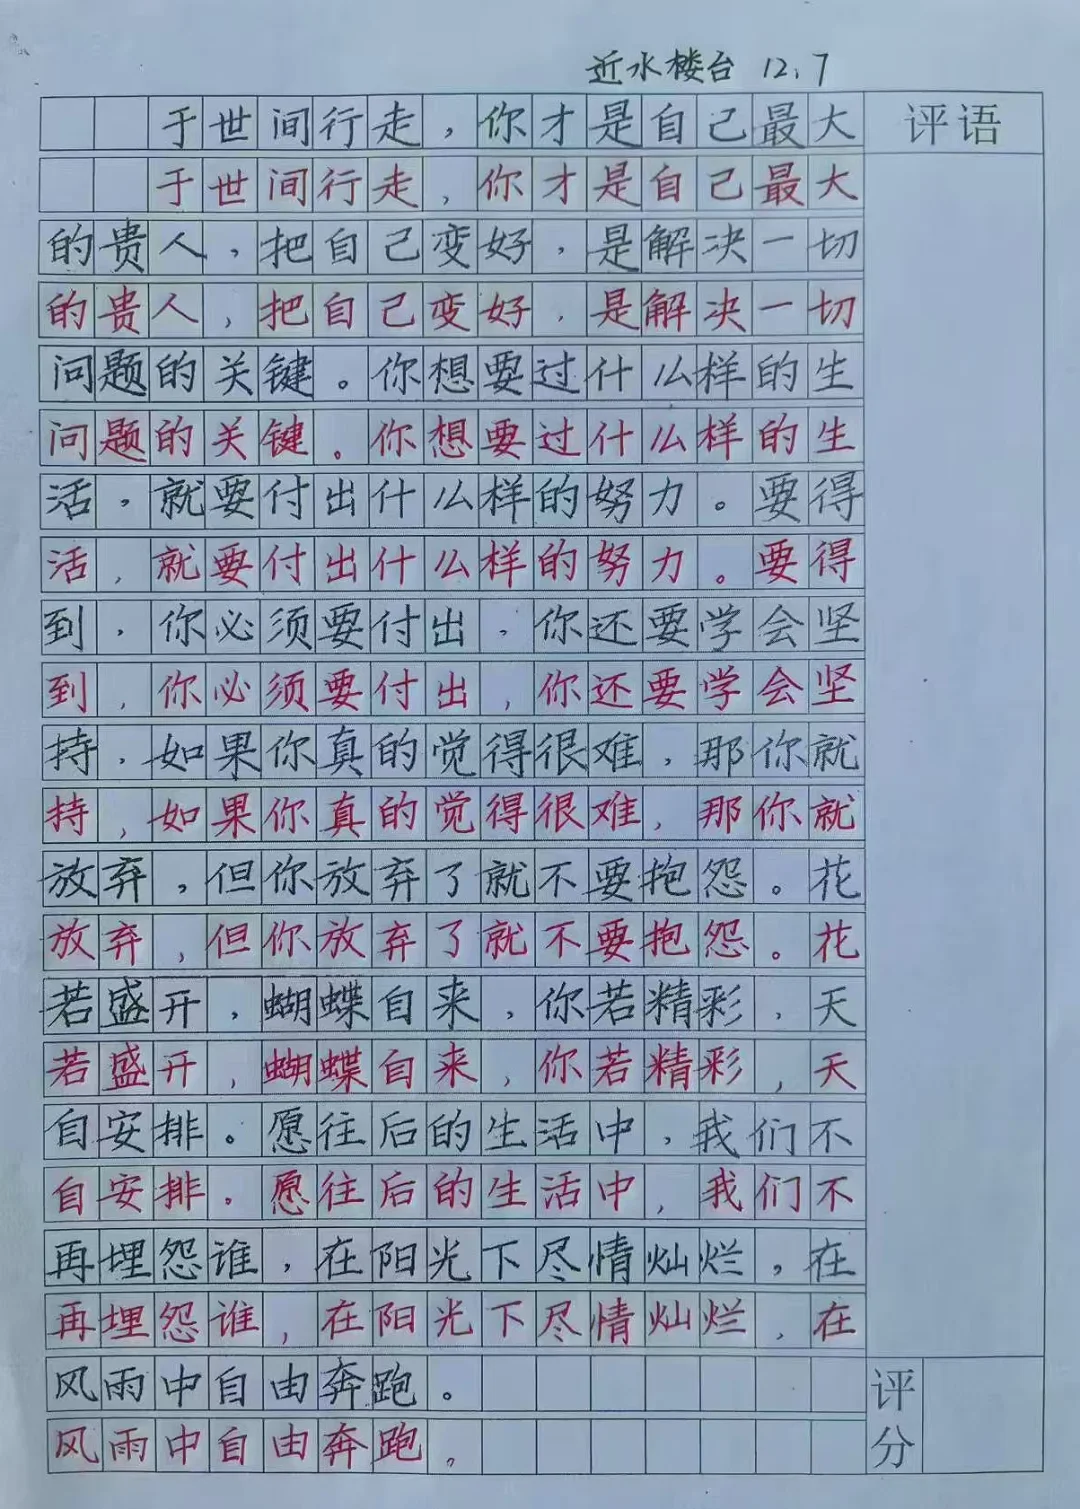 近水楼台 12.7
于世间行走，你才是自己最大
评语
于世间行走，你才是自己最大
的贵人，把自己变好，是解决一切
的贵人，把自己变好，是解决一切
问题的关键。你想要过什么样的生
问题的关键。你想要过什么样的生
活，就要付出什么样的努力。要得
活，就要付出什么样的努力。要得
到，你必须要付出，你还要学会坚
到，你必须要付出，你还要学会坚
持，如果你真的觉得很难，那你就
持，如果你真的觉得很难，那你就
放弃，但你放弃了就不要抱怨。花
放弃，但你放弃了就不要抱怨。花
若盛开，蝴蝶自来，你若精彩，天
若盛开，蝴蝶自来，你若精彩，天
自安排。愿往后的生活中，我们不
自安排。愿往后的生活中，我们不
再埋怨谁，在阳光下尽情灿烂，在
再埋怨谁，在阳光下尽情灿烂，在
风雨中自由奔跑。
风雨中自由奔跑。
评分